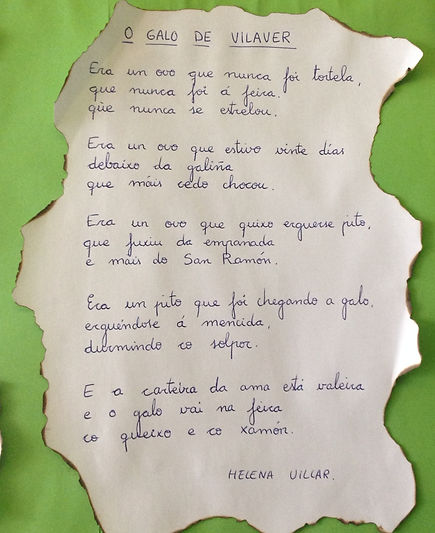 O GALO DE VILAVER
Era un ovo que nunca foi tortela,
que nunca foi á feira,
que nunca se estrelou.
Era un ovo que estivo vinte días
debaixo da galiña
que máis cedo chocou.
Era un ovo que quixo erguerse pito,
que fuxiu da empanada
e mais do San Ramón.
Era un pito que foi chegando a galo,
erguéndose á mencida,
durmindo co solpor.
E a carteira da ama está valeira
e o galo vai na feira
co queixo e co xamón.
HELENA VILLAR.